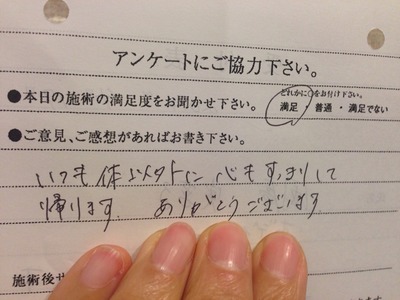 アンケートにご協力下さい。
●本日の施術の満足度をお聞かせ下さい。
どれかに○をお付け下さい。
満足 ・ 普通 ・ 満足でない
●ご意見、ご感想があればお書き下さい。
いつも体以外に心もすっきりして
帰ります. ありがとうございます
施術後せ